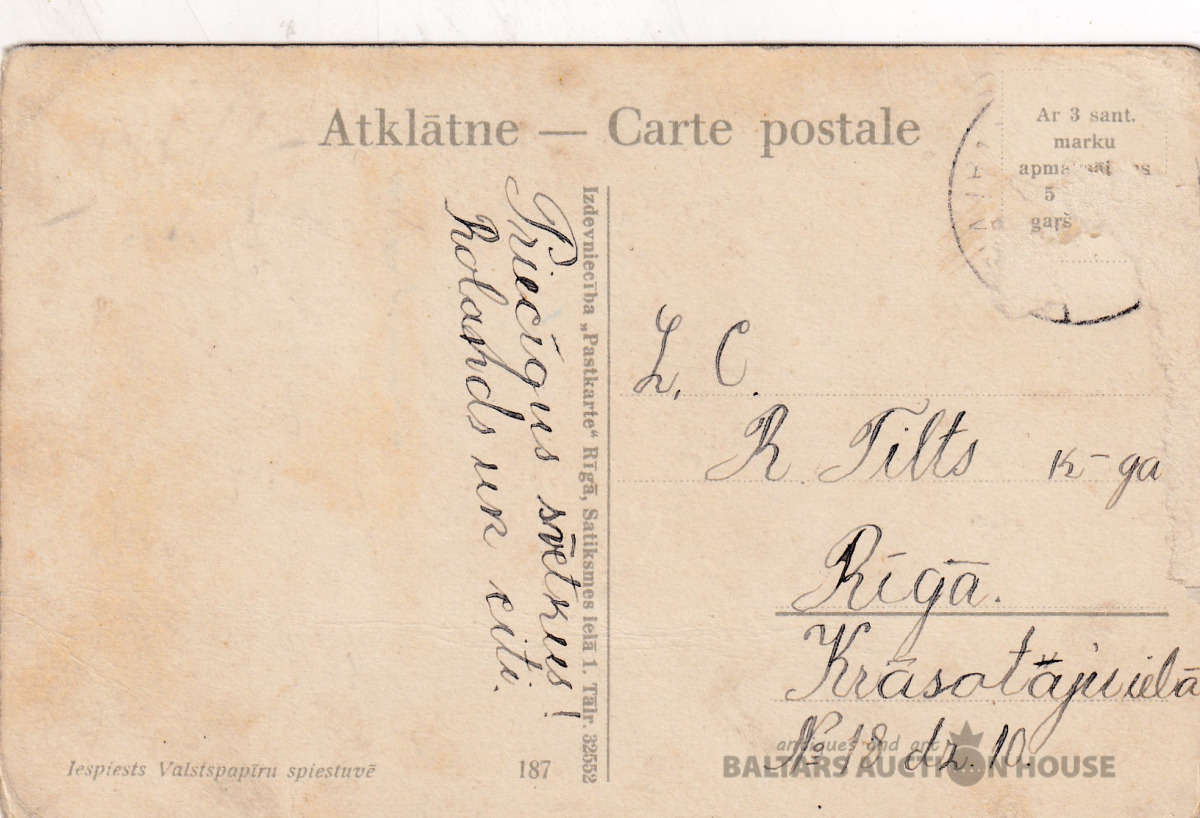 Atklātne — Carte postale
Ar 3 sant.
marku
5
garš
Priecīgus svētkus!
Rolands un citi.
Izdevniecība „Pastkarte“ Rīgā, Satiksmes ielā 1. Tālr. 32552
L. C.
R. Tilts k-ga
Rīgā.
Krāsotāju ielā
№ 18 dz. 10.
Iespiests Valstspapīru spiestuvē
187
antiques and art
BALTARS AUCTION HOUSE